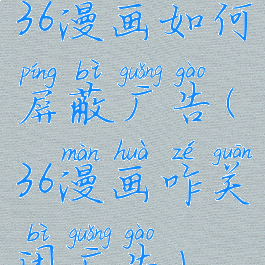 36漫画如何
píng bì guǎng gào
屏蔽广告(
màn huà zé guān
36漫画咋关
bì guǎng gào
闭广告)